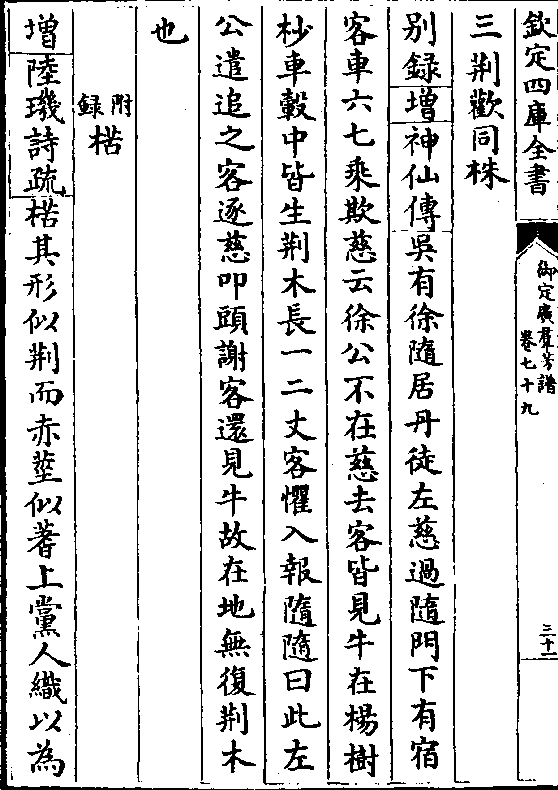 欽定四庫全書
御定廣羣芳譜
卷七十九
三十一
三荆歡同株
别録增神仙傳吳有徐隨居丹徒左慈過隨門下有宿
客車六七乘欺慈云徐公不在慈去客皆見牛在楊樹
杪車轂中皆生荆木長一二丈客懼入報隨隨曰此左
公遣追之客逐慈叩頭謝客還見牛故在地無復荆木
也
附録楛
增陸璣詩疏楛其形似荆而赤莖似蓍上黨人織以為